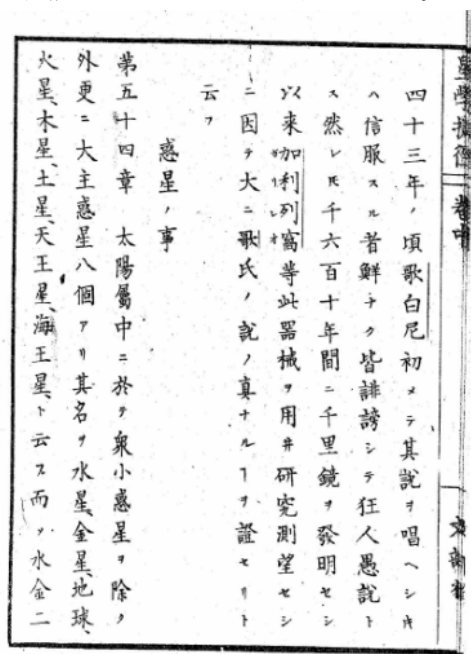 四十三年ノ頃歌白尼初メテ其說ヲ唱ヘシ𪜈
ハ信服スル者鮮ナク皆誹謗シテ狂人愚說ト
ス然レ𪜈千六百十年間ニ千里鏡ヲ發明セシ
以來加利列窩等此器械ヲ用井研究測望セシ
ガリレオ
ニ因テ大ニ歌氏ノ說ノ真ナルヿヲ證セリト
云フ
惑星ノ事
第五十四章 太陽屬中ニ於テ衆小惑星ヲ除ク
外更ニ大主惑星八個アリ其名ヲ水星、金星、地球、
火星、木星、土星、天王星、海王星、ト云ス而ノ水金二